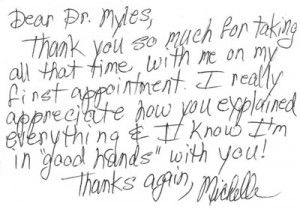 Dear Dr. Myles,
Thank you so much for taking
all that time with me on my
first appointment. I really
appreciate how you explained
everything & I know I'm
in "good hands" with you!
Thanks again, Michelle